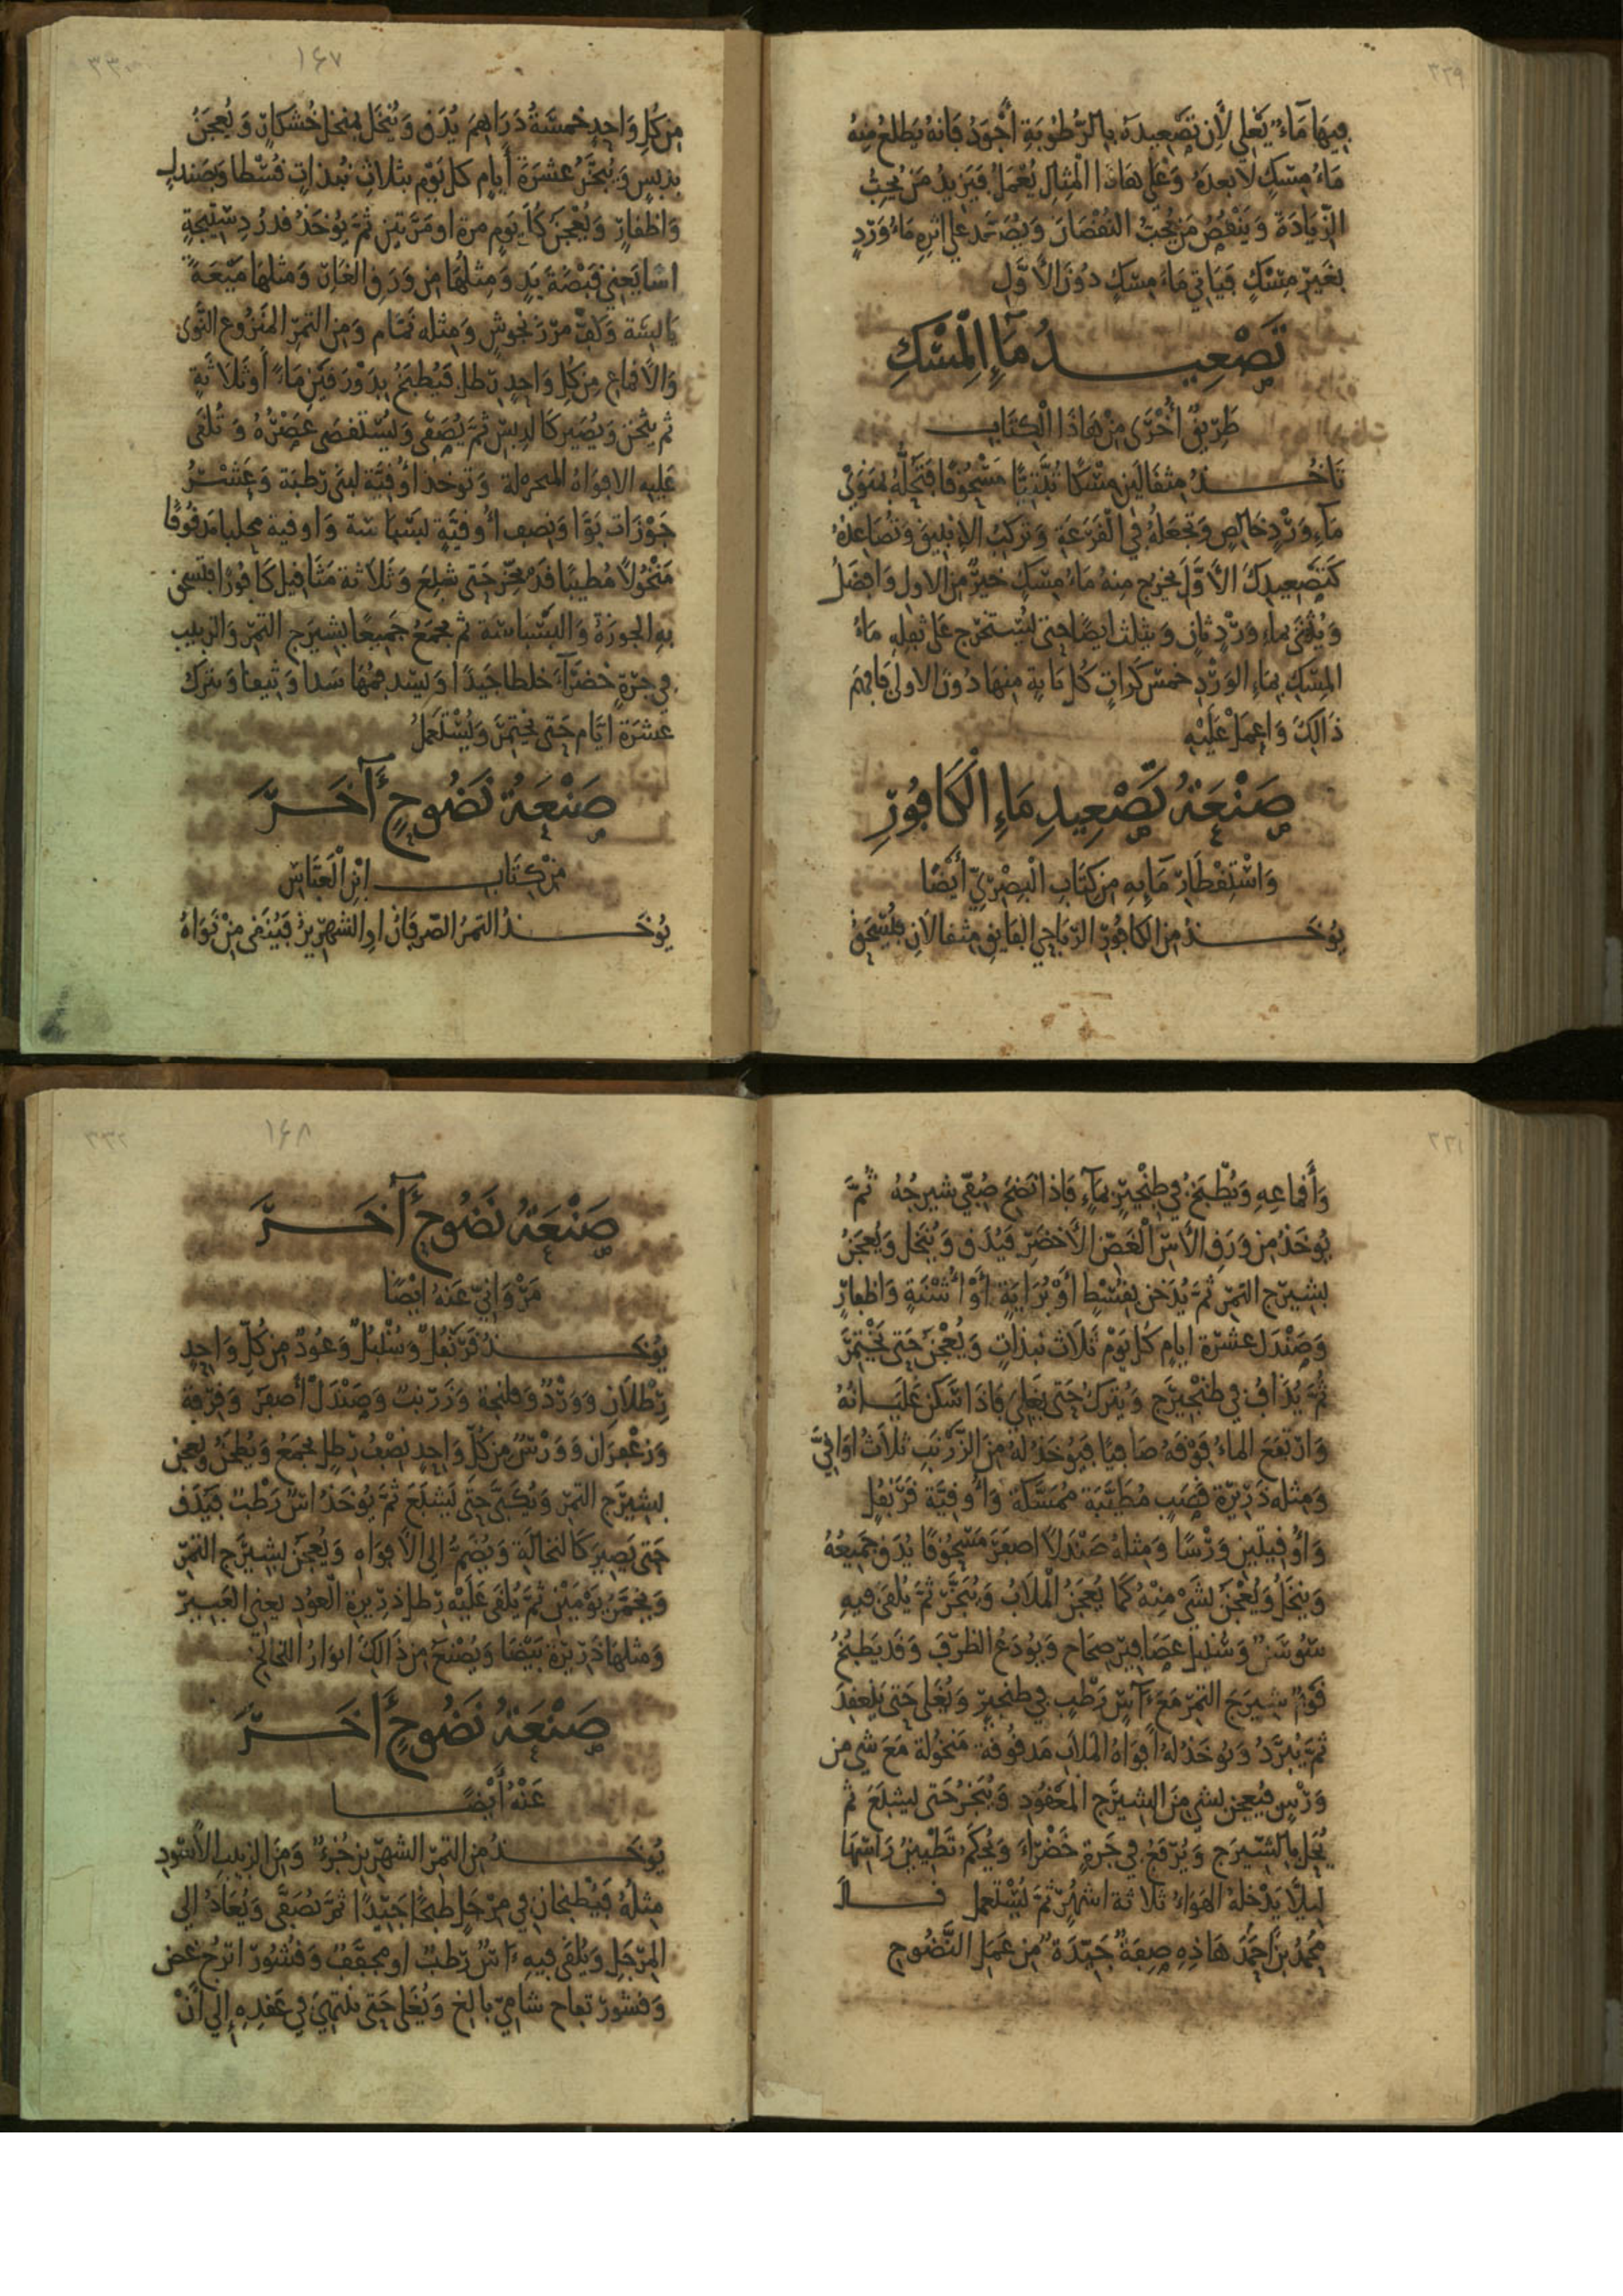 ٣٢٩
فِيهَا مَآءٌ يَغْلِي لِأَنَّ تَصْعِيدَهُ بِالرُّطُوبَةِ أَجْوَدُ فَانهُ يَطلعُ مِنهُ
مَاءُ مِسْكٍ لَا بَعدَهُ وَعَلى هَاذَا الْمِثِالِ يُعْمَلُ فَيَزِيدُ مَنْ يُحِبُّ
الزِّيَادَةَ وَيَنْقُصُ مَنْ يُحِبُّ النُقْصَانَ وَيُصَعَّد على اثرِهِ مَاءُ وَرْدٍ
بغَيرِ مِسْكٍ فَيَاتي مَاءُ مِسكٍ دُونَ الأَوَّلِ
تَصْعِيدُ مَآءِ الْمِسْكِ
طَرِيقٌ أُخْرَى مِنْ هَاذَا الْكِتَابِ
تَاخُذُ مِثقَالَينِ مِسْكًا تُبَّتِيًّا مَسْحُوقًا فَتَحُلُّهُ بمَنَوَيْ
مَآءِ وَرْدٍ خَالِصٍ وَتَجعَلُهُ فِي الْقَرعَةِ وَتركبُ الإنبيقَ وَتُصَاعِدُهُ
كَتَصْعِيدِكَ الأَوَّلَ يخرج مِنهُ مَاءُ مِسْكٍ خيرٌ مِن الاول وَافضَلُ
وَيُثنَّى بماءِ وَرْدٍ ثانٍ وَيثلث ايضًا حتى يُستخرَج عَلى ثفلِهِ مَاءُ
المِسْكِ بمَاءِ الوَرْدِ خمسَ كَرَّاتٍ كل ثانيةٍ مِنهَا دُونَ الاولى فافهَم
ذَالِكَ وَاعمَلْ عَلَيْهِ
صَنْعَةُ تَصْعِيدِ مَاءِ الْكَافُورِ
وَاسْتِقْطَارِ مَآيِهِ مِن كِتَابِ الْبِصْرِيِّ أَيْضًا
يُوخَذُ مِنَ الكافُورِ الرَّبَاحِي الفَايِقِ مِثقالانِ فَيُسْحَقُ
١٦٧
٣٣٠
مِن كلِ وَاحِدٍ خمسَةُ دَرَاهِمَ يُدَق وَيُنخَل بمنخل خُشكانٍ وَيُعجَنُ
بدبسٍ وَيُبَخَّرُ عشرَةَ أيامٍ كل يَوْمٍ بثلاثِ نبذاتٍ قُسْطًا وَصَندلٍ
وَاظفارٍ وَيُعْجَنُ كلَّ يَومٍ مرة او مَرَّتين ثمَّ يُوخَذُ قدرُ دستيجَةٍ
اسًا يَعنِي قبْضَةَ يَدٍ وَمِثلُهَا مِن وَرَقِ الغَارِ وَمثلهَا مَيْعَةً
يَابسَة وَكَفُّ مرزنجوشٍ وَمِثله نَمَّام وَمِن التمرِ المنزُوع النَّوى
وَالأقماعِ مِن كلِ وَاحِدٍ رَطل فيُطبَخُ بدَوْرَقَينِ مَاءً أوثَلاثةٍ
ثم يثخن وَيُصَيرُ كَالدبسِ ثمَّ يُصَفَّى وَيُستقصَى عَصْرُهُ وَتُلقَى
عَليه الافوَاهُ المنخولة وَتوخذ أُوقيَّة لبنَى رَطبَة وَعَشْرُ
جَوْزَات بَوَّا وَنِصف اُوقيَّةٍ بَسْبَاسَة وَاوقية محلبا مَدقُوقًا
مَنْخُولًا مُطيبًا قَدْ بخِّر حَتى شَبِعَ وَثَلاثة مَثاقيل كَافُورًا فتسحق
بهِ الجوزَةُ وَالبَسْبَاسَة ثم يجمَعُ جَمِيعًا بشيرَج التمرِ وَالزبيب
في جَرةٍ خَضْرَآءَ خلطًا جَيدًا وَيسد فمُهَا سَدا وَثيقا وَيترك
عَشرَة ايَّام حَتى يختمِرَ وَيُسْتَعمَلُ
صَنْعَةُ نَضُوحٍ آخَرَ
مِنْ كِتَابِ ابْنِ الْعَبَّاسِ
يُوخَذُ التمرُ الصَّرفَانُ او الشهرِيزُ فَيُنقَى مِنْ نَوَاهُ
٣٣١
وَأَقماعِهِ وَيُطْبَخُ فِي طِنْجِيرٍ بمَآءٍ فَاذا نَضِجَ صُفِّيَ شيرجُهُ ثُمَّ
يُوخَذُ مِن وَرَقِ الأَسِ الْغَضِّ الأَخضَرِ فَيُدَق وَيُنخل وَيُعجَنُ
بشيرَج التمرِ ثمَّ يُدَخن بقُسْطٍ أَوْ بُرَايَةٍ أَوْ أُشْنَةٍ وَاظفارٍ
وَصَنْدَل عشرَة ايامٍ كل يَوْم ثَلاث نبذاتٍ وَيُعْجَنُ حَتى يَخْتَمِرَ
ثُمَّ يُذَافُ في طنجِيرٍ وَيُترَكُ حَتى يَغلِيَ فَاذَا سَكنَ غَلَيَانُهُ
وَارْتفعَ الماءُ فَوْقَهُ صَافيًا فيُوخَذُ لَهُ مِنَ الزَّرْنَبِ ثلاثُ أوَاقِيَّ
وَمِثله ذَرِيرَة قَصَبٍ مُطَيَّبَة مُمَسَّكَة وَأُوقيَّة قَرَنْفُلٍ
وَأُوقِيتَينِ وَرْسًا وَمثلهُ صَنْدَلًا اصفَرَ مَسْحُوقًا يُدَق جَمِيعُهُ
وَينخَلُ وَيُعْجَنُ بشَيْ مِنْهُ كَمَا يُعجَنُ الْملَابُ وَيُبَخَّر ثمَّ يُلقَى فيهِ
سَوْسَنٌ وَسُنبل عصَافير صِحَاح وَيُودَعُ الظرْفَ وَقد يَطبُخُ
قَوْمٌ شيرَجَ التمرِ مَعَ آسٍ رَطْبٍ في طنجِيرٍ وَيُغلى حَتى يَنعقدَ
ثُمَّ يُبَرَّدُ وَيُوخَذُ لهُ أفوَاهُ الملاَبِ مَدقُوقة مَنخُولة مَعَ شي من
وَرْسٍ فيُعجَن بشيٍ مِنَ الشيرَج المَعقُودِ وَيُبَخرُ حَتى يشبَعَ ثم
يُحَل بالشيرَج وَيُرْفَعُ في جَرةٍ خَضْرَاءَ وَيُحكَمُ تَطْيِينُ رَاسِهَا
لِيلَّا يَدْخلهُ الهَوَاءُ ثَلاثة اشهُرٍ ثمَّ يُسْتعمل قال
مُحمدُ بنُ أَحمَدَ هَاذِهِ صِفَةٌ جَيِّدَةٌ مِن عَمَلِ النَّضُوحِ
١٦٨
٣٣٢
صَنْعَةُ نَضُوحٍ آخَرَ
مَرْوَانِيّ عَنهُ ايْضًا
يُوخَذُ قَرَنْفُلٌ وَسُنْبُلٌ وَعُودٌ مِن كُلِّ وَاحِدٍ
رِطْلَانِ وَوَرْدٌ وَفلنجة وَزَرْنبٌ وَصَنْدَلٌ أصفَرُ وَقِرْفة
وَزعْفرَان وَوَرْسٌ مِن كلِّ وَاحِدٍ نِصْفُ رِطلٍ يجمَعُ وَيُطحَنُ وَيعجن
بشيرَج التمرِ وَيُكَبَّى حَتى يَشبَعَ ثمَّ يُوخَذُ اسٌ رَطْبٌ فيُدَق
حَتى يَصِيرَ كَالنخالَةِ وَيُضَمُّ إلى الأفوَاهِ وَيُعجَنُ بشِيرَج التمرِ
وَيُخَمَّرُ يَوْمَيْن ثمَّ يُلقَى عَلَيْهِ رَطل ذَرِيرةِ الْعودِ يعني العَبيرَ
وَمثلهَا ذَرِيرَة بَيْضَا وَيُصْنَعُ مِن ذَالِكَ
صَنْعَةُ نَضُوحٍ أَخَرَ
عَنْهُ أَيْضًا
يُوخَذُ مِن التمرِ الشهرِيزِ جُزءٌ وَمِنَ الزبيبِ الأَسوَدِ
مِثلُهُ فَيُطبخانِ فِي مِرْجَلٍ طَبخًا جَيِّدًا ثمَّ يُصَفَّى وَيُعَادُ إلي
المِرْجَلِ وَيُلقى فيهِ اسٌ رَطبٌ او مجفَّفٌ وَقشُورُ اترُجٍ غض
وَقشورُ تفاح شَاميّ بالغ وَيُغلى حَتى يَنتهِيَ فِي عَقدِهِ إلي أَنْ